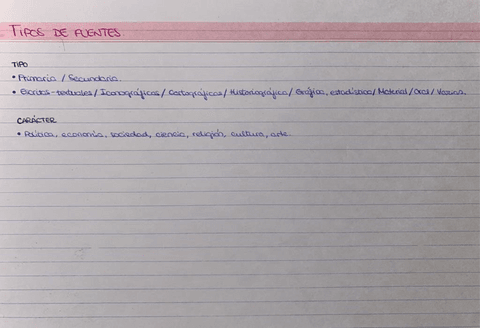 TIPOS DE FUENTES
TIPO
• Primaria / Secundaria.
• Escritas-textuales / Iconográficas / Cartográficas / Historiográfica / Gráfica, estadística / Material / Oral / Varias.
CARÁCTER
• Política, economía, sociedad, ciencia, religión, cultura, arte.